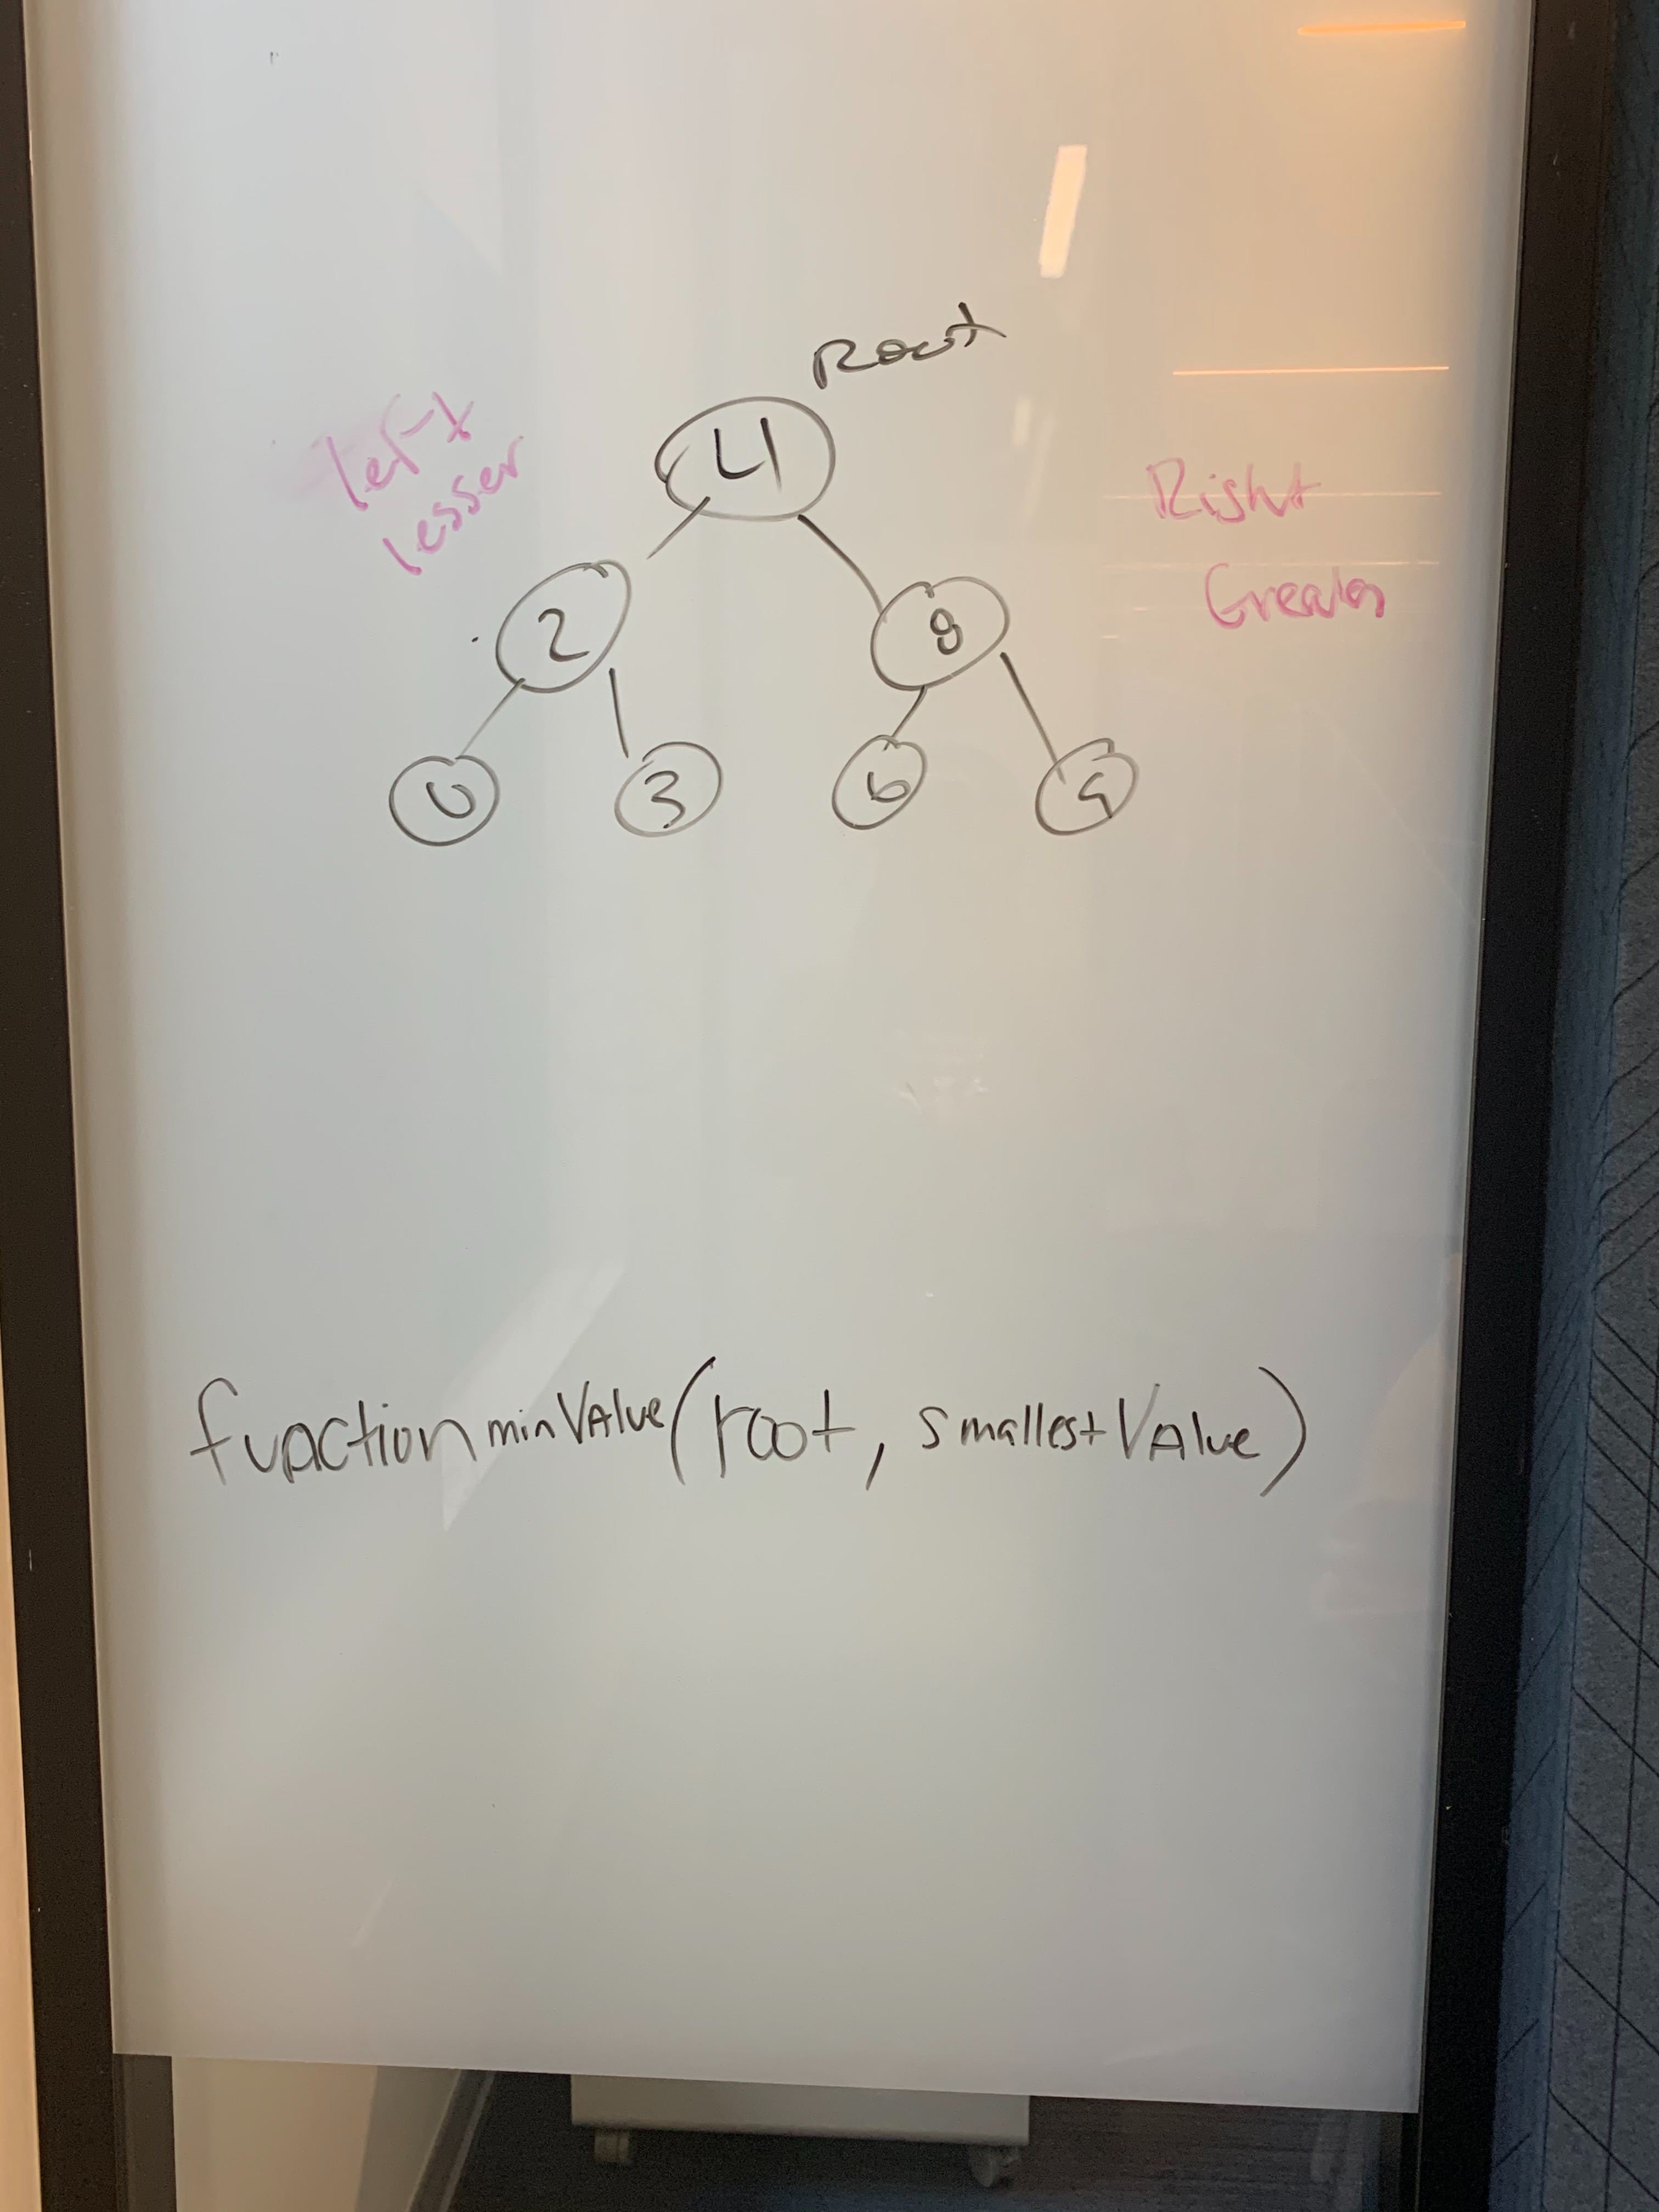 Root
left
lesser
4
Right
Greater
2
8
0
3
6
9
function minValue(root, smallestValue)